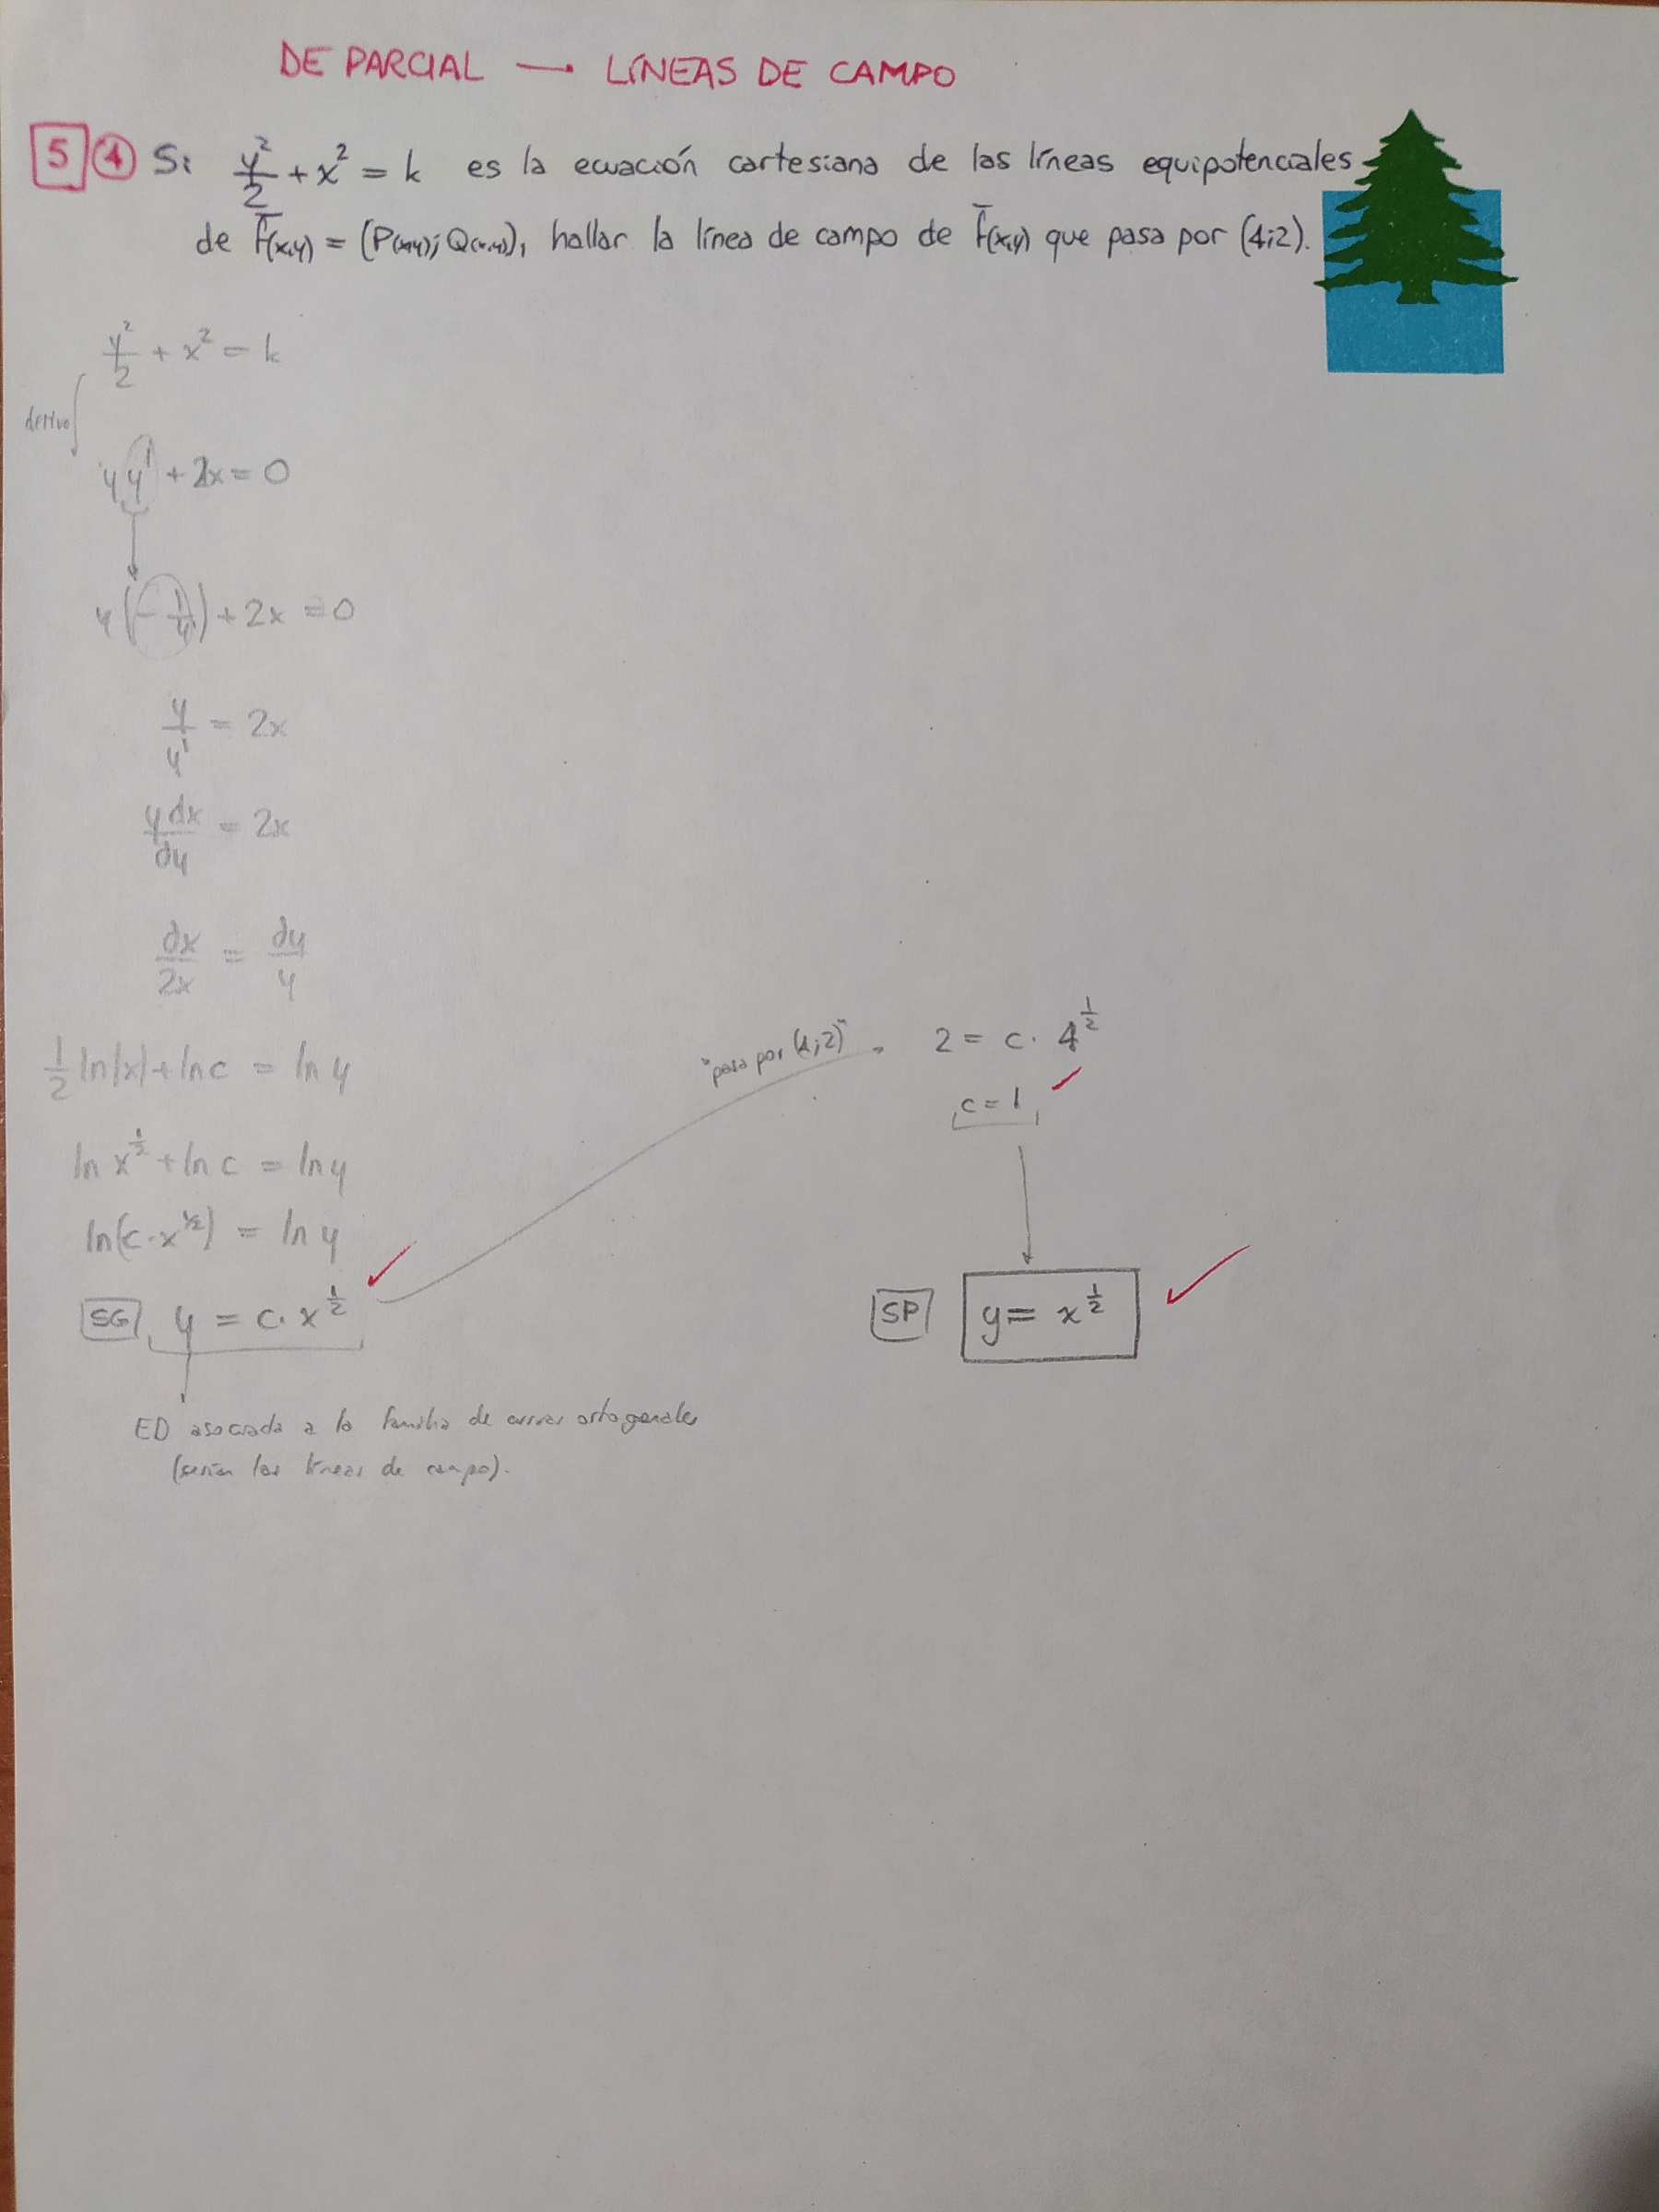 DE PARCIAL — LÍNEAS DE CAMPO
5 4 Si y²/2 + x² = k es la ecuación cartesiana de las líneas equipotenciales
de F̄(x,y) = (P(x,y); Q(x,y)), hallar la línea de campo de f̄(x,y) que pasa por (4;2).
y²/2 + x² = k
derivo
yy' + 2x = 0
y(-1/y') + 2x = 0
y/y' = 2x
y dx/dy = 2x
dx/2x = dy/y
1/2 ln|x| + ln c = ln y
ln x^½ + ln c = ln y
ln(c·x^½) = ln y
SG y = c·x^½
ED asociada a la familia de curvas ortogonales
(serían las líneas de campo).
"pasa por (4;2)"
2 = c· 4^½
c = 1
SP y = x^½